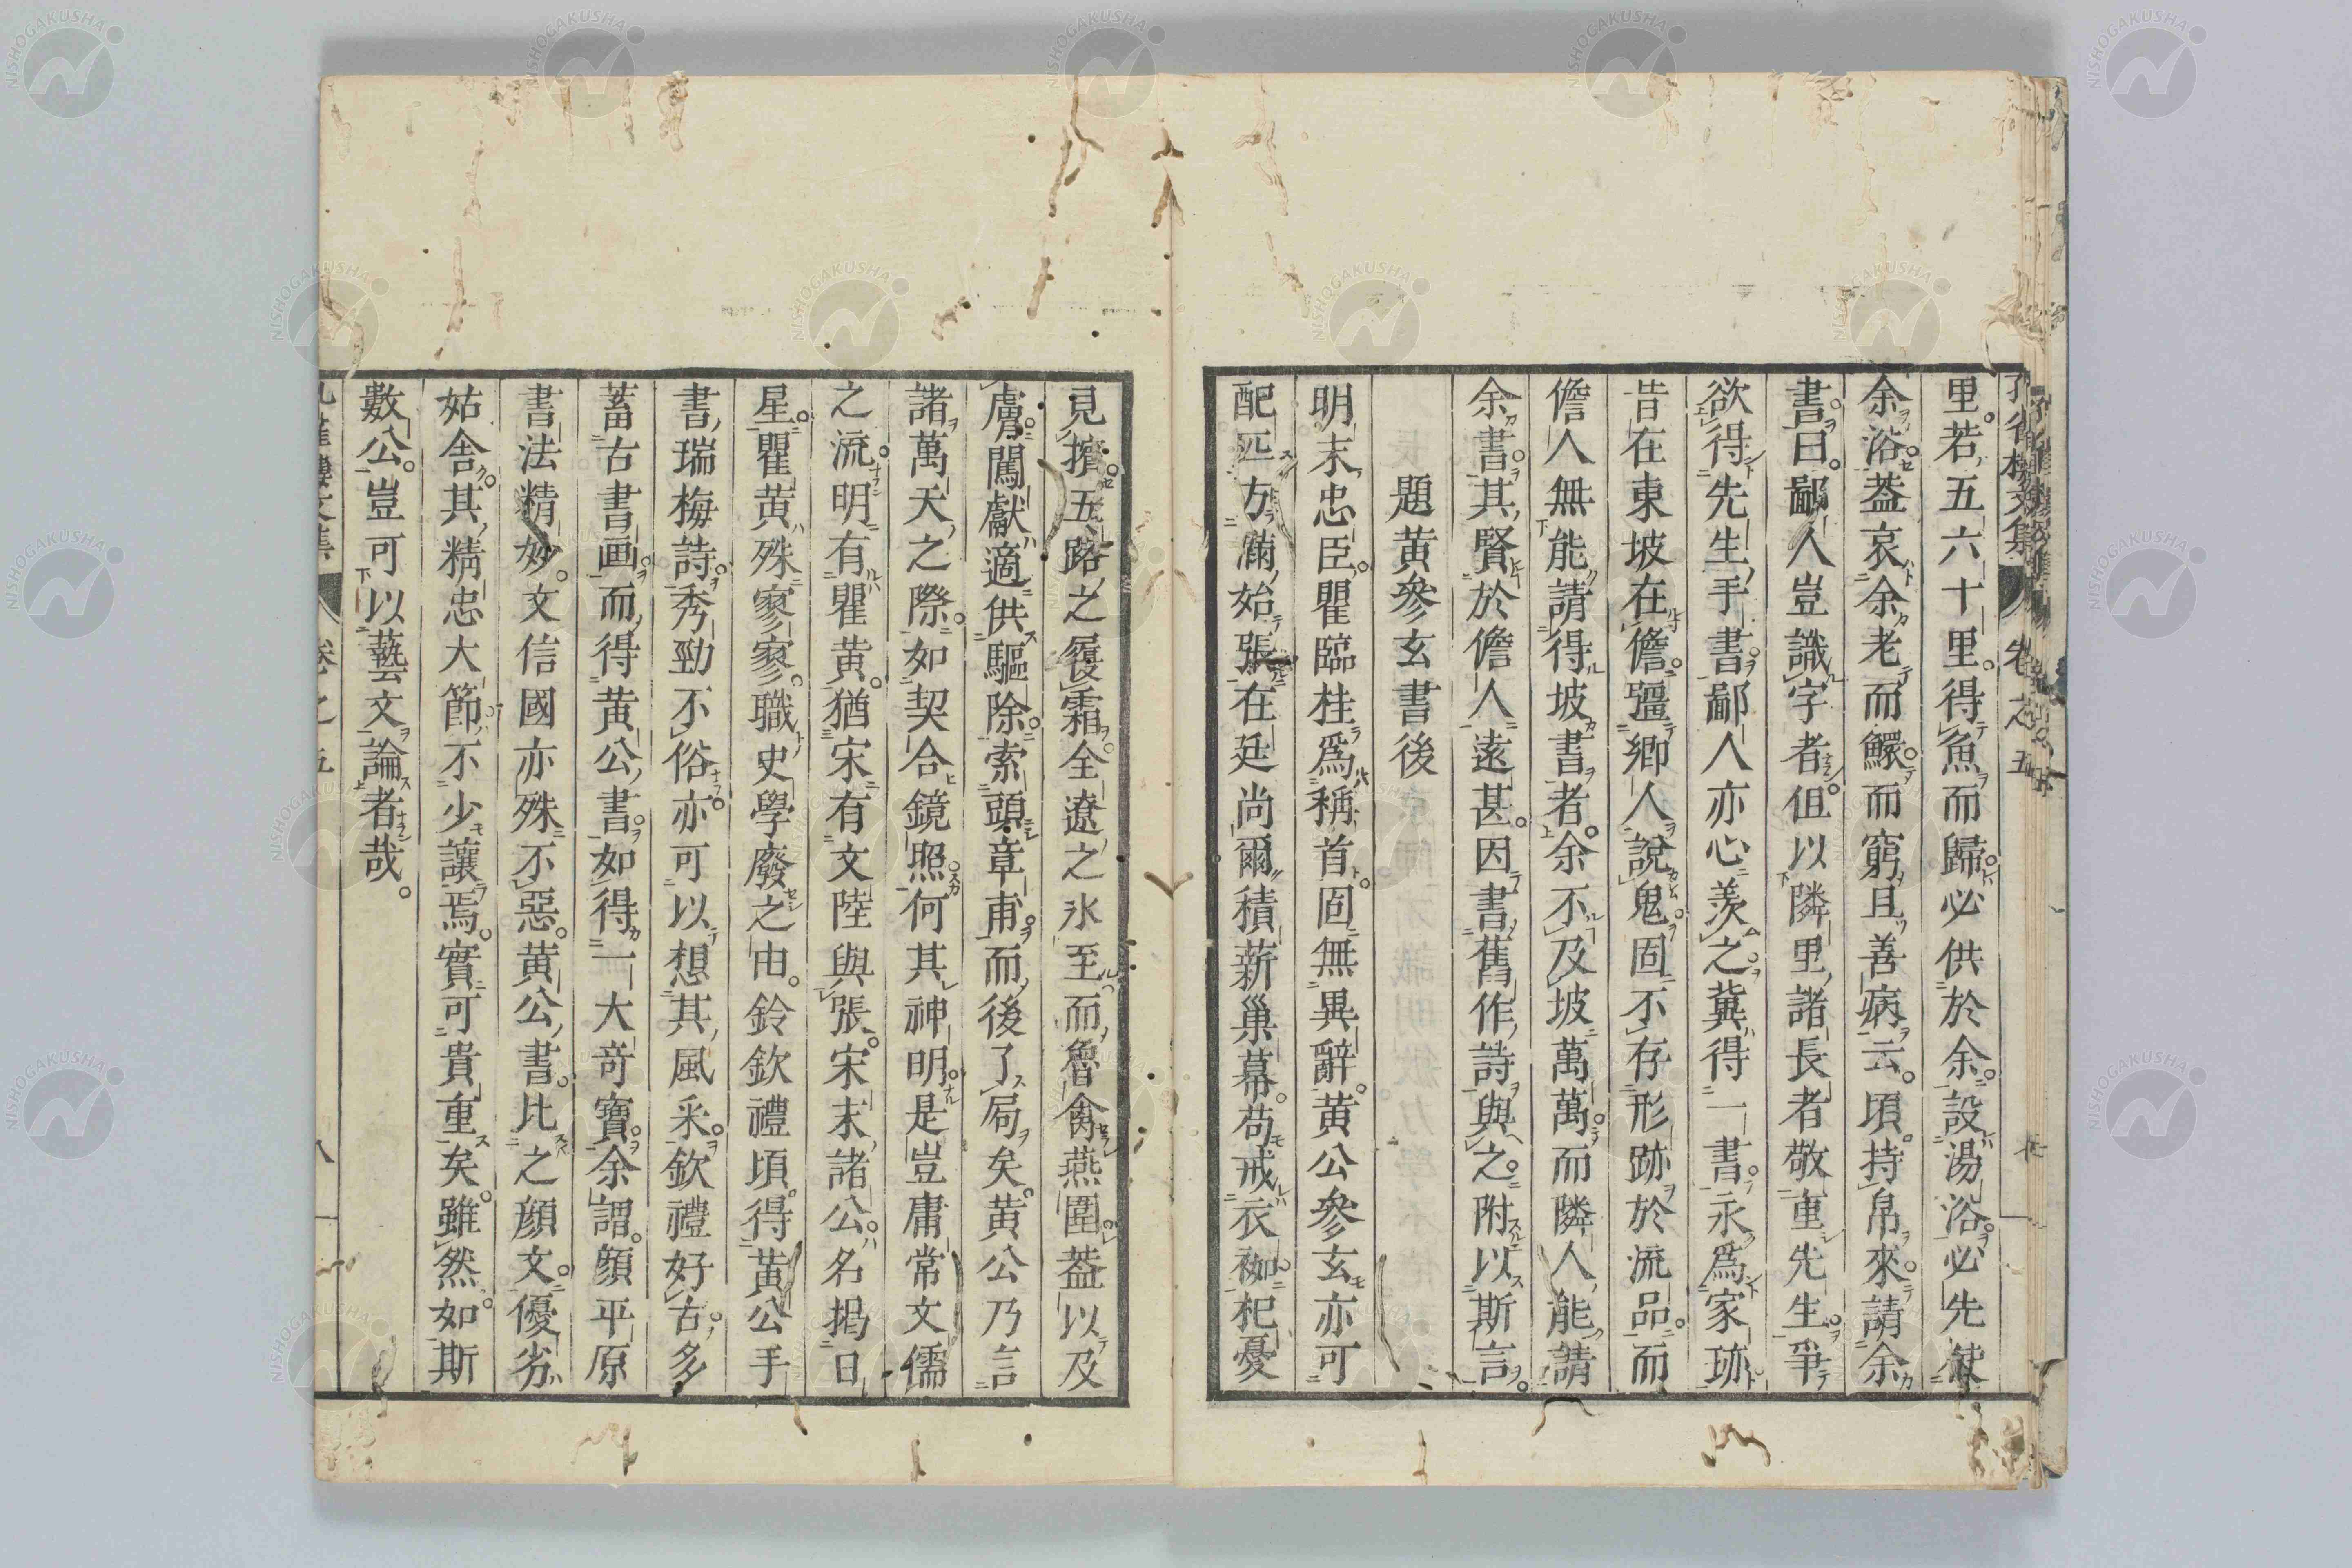 里。若五六十里。得魚而歸。必供於余。設湯浴。必先使
余浴。蓋哀余老而鰥而窮。且善病云。頃持帛來。請余
書。曰。鄙人豈識字者。但以隣里諸長者敬重先生。爭
欲得先生手書。鄙人亦心羨之。冀得一書。永爲家珎
昔在東坡在儋。彊卿人說鬼。固不存形跡於流品。而
儋人無能請得坡書者。余不及坡萬萬。而隣人能請
余書。其賢於儋人遠甚。因書舊作詩與之。附以斯言。
題黄參玄書後
明末忠臣。瞿臨桂爲稱首。固無異辭。黄公參玄亦可
配匹。方滿始張。在廷尚爾積薪巢幕。苟戒衣袽。杞憂
見擠。五路之履霜。全遼之氷至。而魯禽燕圍。蓋以及
膚。闖獻適供驅除。索頭章甫。而後了局矣。黄公乃言
諸萬天之際。如契合鏡照。何其神明。是豈庸常文儒
之流。明有瞿黄。猶宋有文陸與張。宋末諸公。名揭日
星。瞿黄殊寥寥。職史學廢之由。鈴欽禮頃得黄公手
書瑞梅詩。秀勁不俗。亦可以想其風采。欽禮好古。多
蓄古書画。而得黄公書。如得一大奇寶。余謂。顔平原
書法精妙。文信國亦殊不惡。黄公書。比之顔文。優劣
姑舍。其精忠大節。不少讓焉。實可貴重矣。雖然。如斯
數公。豈可以藝文論者哉。
卷之五
八